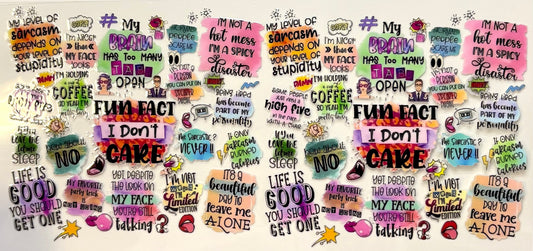 MY LEVEL OF
sarcasm
DEPENDS ON
YOUR LEVEL OF
stupidity
#
My
BRAIN
HAS TOO MANY
TABS
OPEN
I'm Nicer
than
MY FACE
looks
people
I'M NOT A
hot mess
I'M A SPICY
disaster
I'M HOLDING
COFFEE
SO YEAH I'M
It's not a
PERSON
YOU CAN PUT ON
has become
part of my
personality
FUN FACT
I Don't
CARE
LOVE
SLEEP
HOW ABOUT
NO
Me Sarcastic?
NEVER!!
IF ONLY
SARCASM
BURNED
calories
LIFE IS
GOOD
YOU SHOULD
GET ONE
MY FAVORITE
party trick
Yet DESPITE
the look on
MY FACE
YOU'RE STILL
talking?
I'M NOT
Limited
EDITION
IT'S A
Beautiful
DAY TO
leave me
ALONE
MY LEVEL OF
sarcasm
DEPENDS ON
YOUR LEVEL OF
stupidity
#
My
BRAIN
HAS TOO MANY
TABS
OPEN
I'm Nicer
than
MY FACE
looks
people
I'M NOT A
hot mess
I'M A SPICY
disaster
I'M HOLDING
COFFEE
SO YEAH I'M
It's not a
PERSON
YOU CAN PUT ON
high five
has become
part of my
personality
FUN FACT
I Don't
CARE
LOVE
SLEEP
HOW ABOUT
NO
Me Sarcastic?
NEVER!!
IF ONLY
SARCASM
BURNED
calories
LIFE IS
GOOD
YOU SHOULD
GET ONE
MY FAVORITE
party trick
Yet DESPITE
the look on
MY FACE
YOU'RE STILL
talking?
I'M NOT
Limited
EDITION
IT'S A
Beautiful
DAY TO
leave me
ALONE